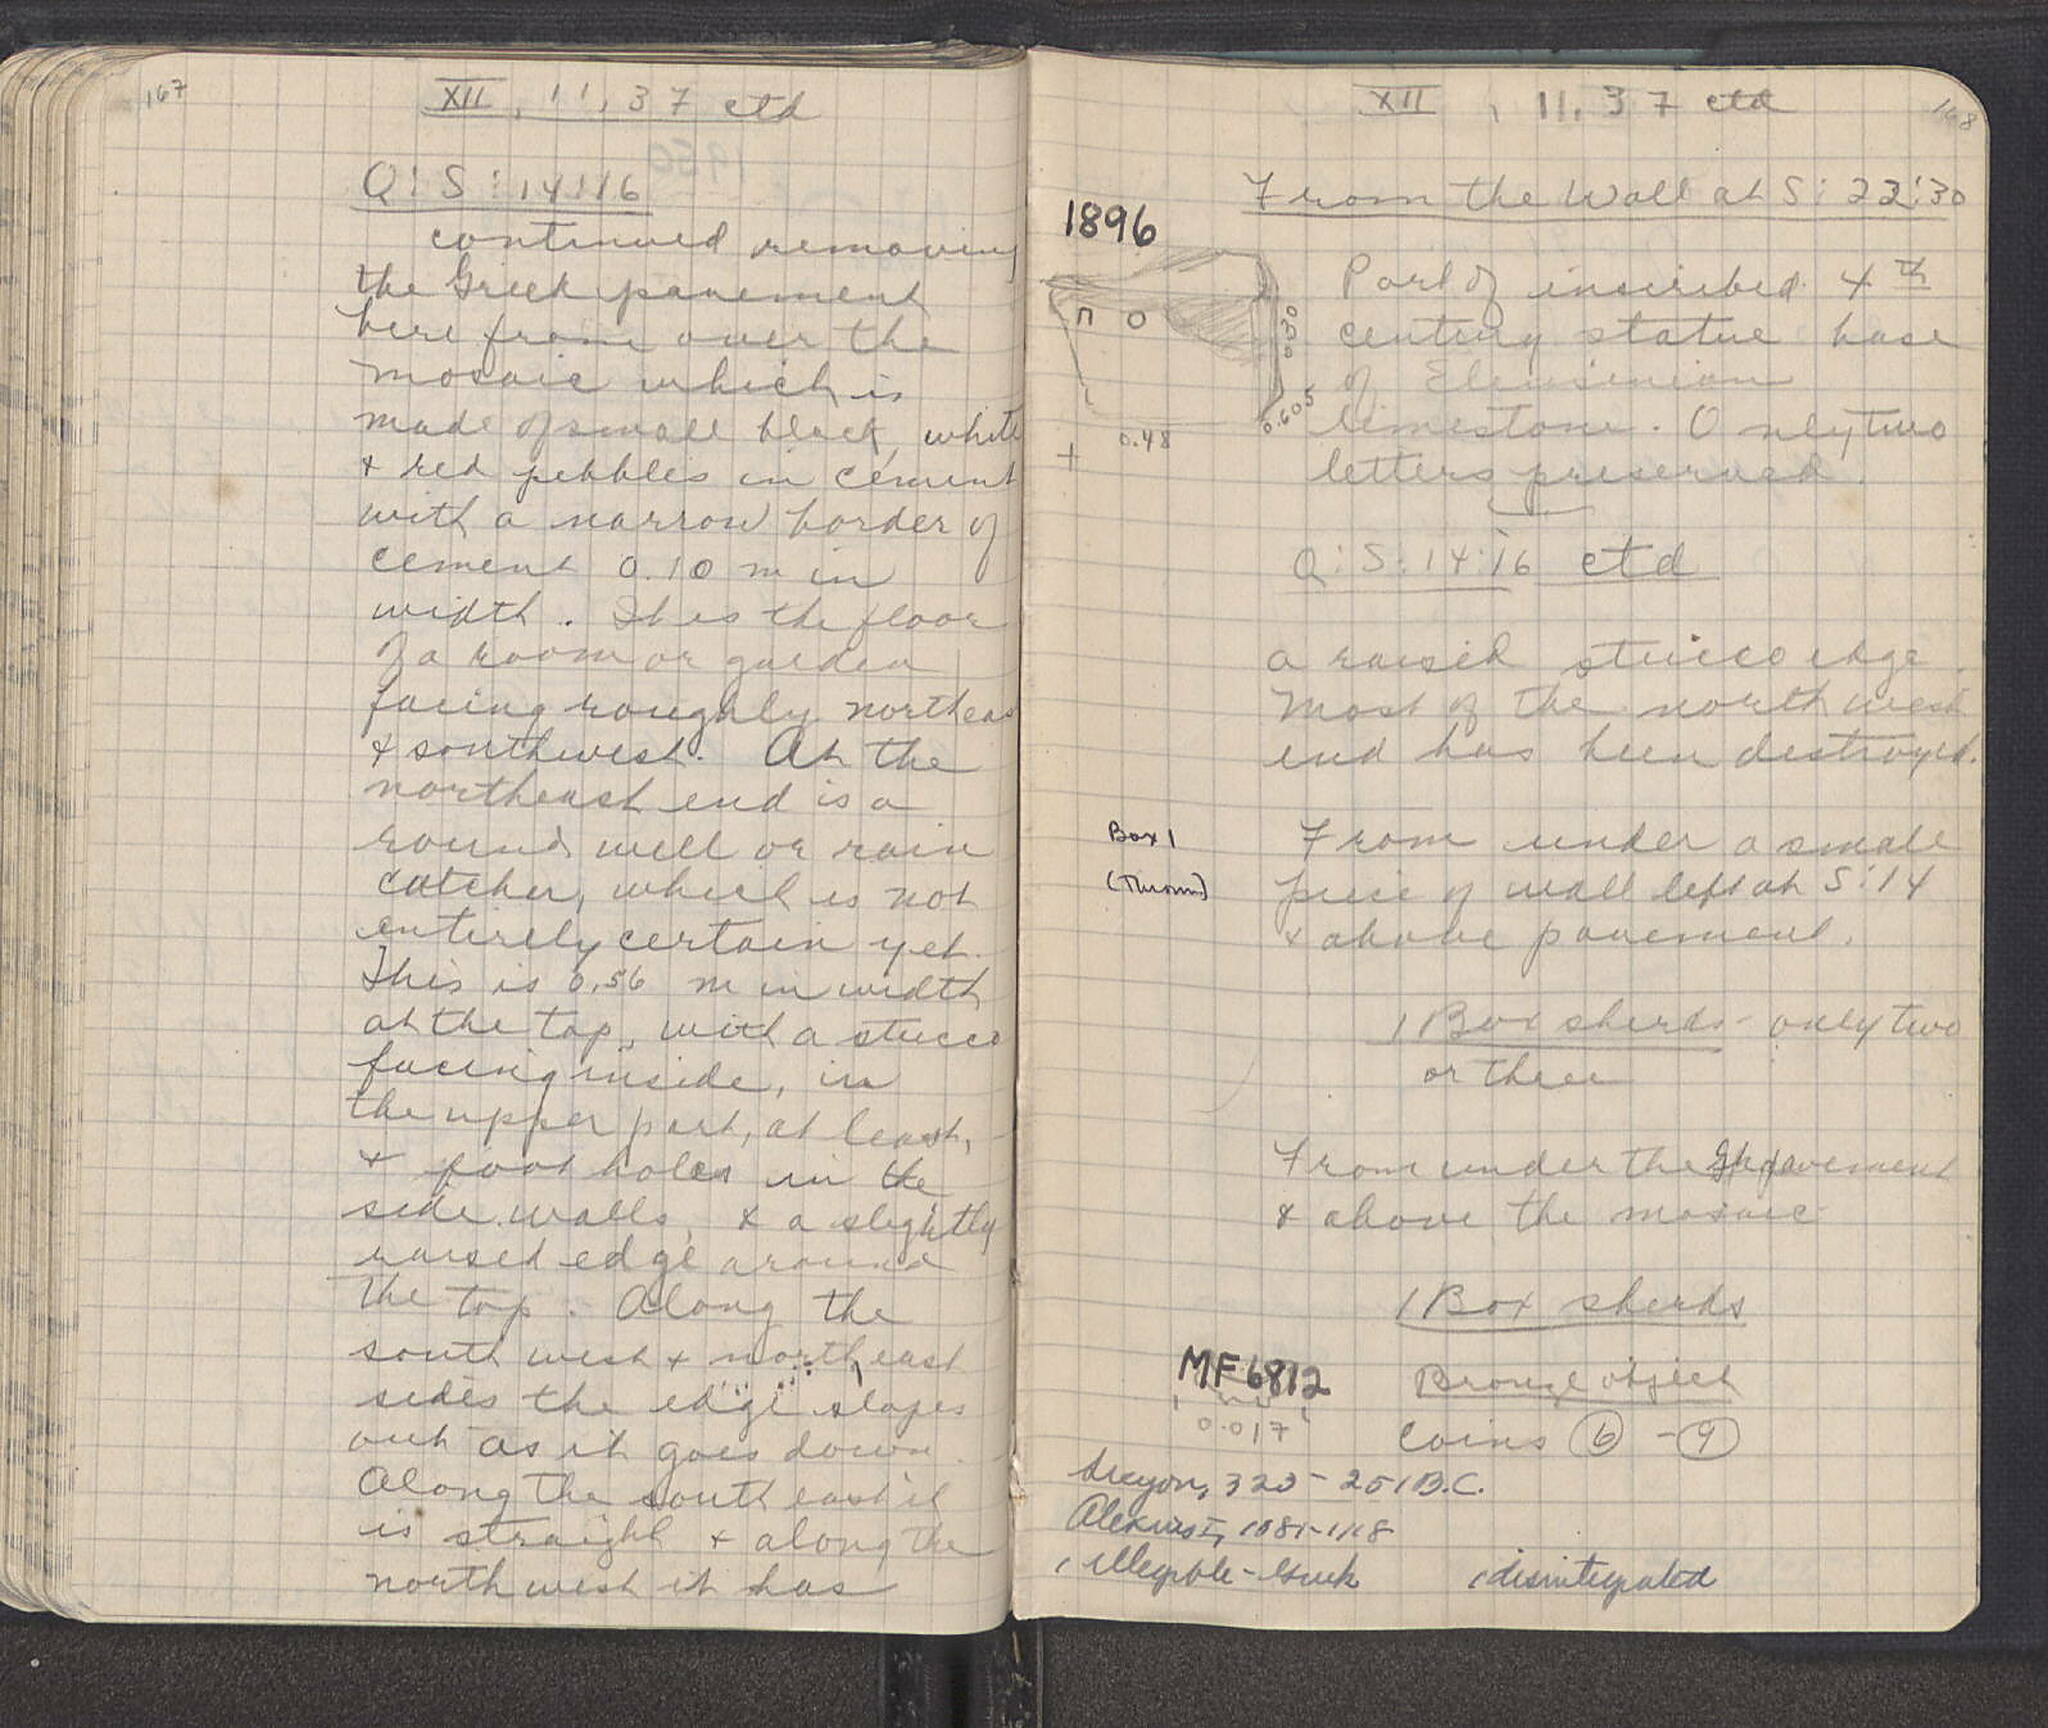 167
XII, 11, 37 ctd
Q:S:14:16
continued removing
the Greek pavement
here from over the
mosaic which is
made of small black, white
+ red pebbles in cement
with a narrow border of
cement 0.10 m in
width. It is the floor
of a room or garden
facing roughly northeas
+ southwest. At the
northeast end is a
round well or rain
catcher, which is not
entirely certain yet.
This is 0.56 m in width
at the top, with a stucco
facing inside, in
the upper part, at least,
+ foot holes in the
side walls, & a slightly
raised edge around
the top. Along the
south west + north east
sides the edge slopes
out as it goes down.
Along the south east it
is straight + along the
north west it has
168
XII, 11, 37 ctd
From the Wall at S:22:30
1896
Π Ο
0.30
0.605
0.48
+
Part of inscribed 4th
century statue base
of Eleusinian
limestone. Only two
letters preserved.
Q:S:14:16 ctd
a raised stucco edge.
Most of the north west
end has been destroyed.
Box 1
(Thrown)
From under a small
piece of wall left at S:14
+ above pavement.
1 Box sherds - only two
or three
From under the Gk pavement
& above the mosaic
1 Box sherds
MF 6812
0.017
Bronze object
Coins 6 - 9
Sicyon, 323-251 B.C.
Alexius I, 1081-1118
1 illegible - Greek
1 disintegrated